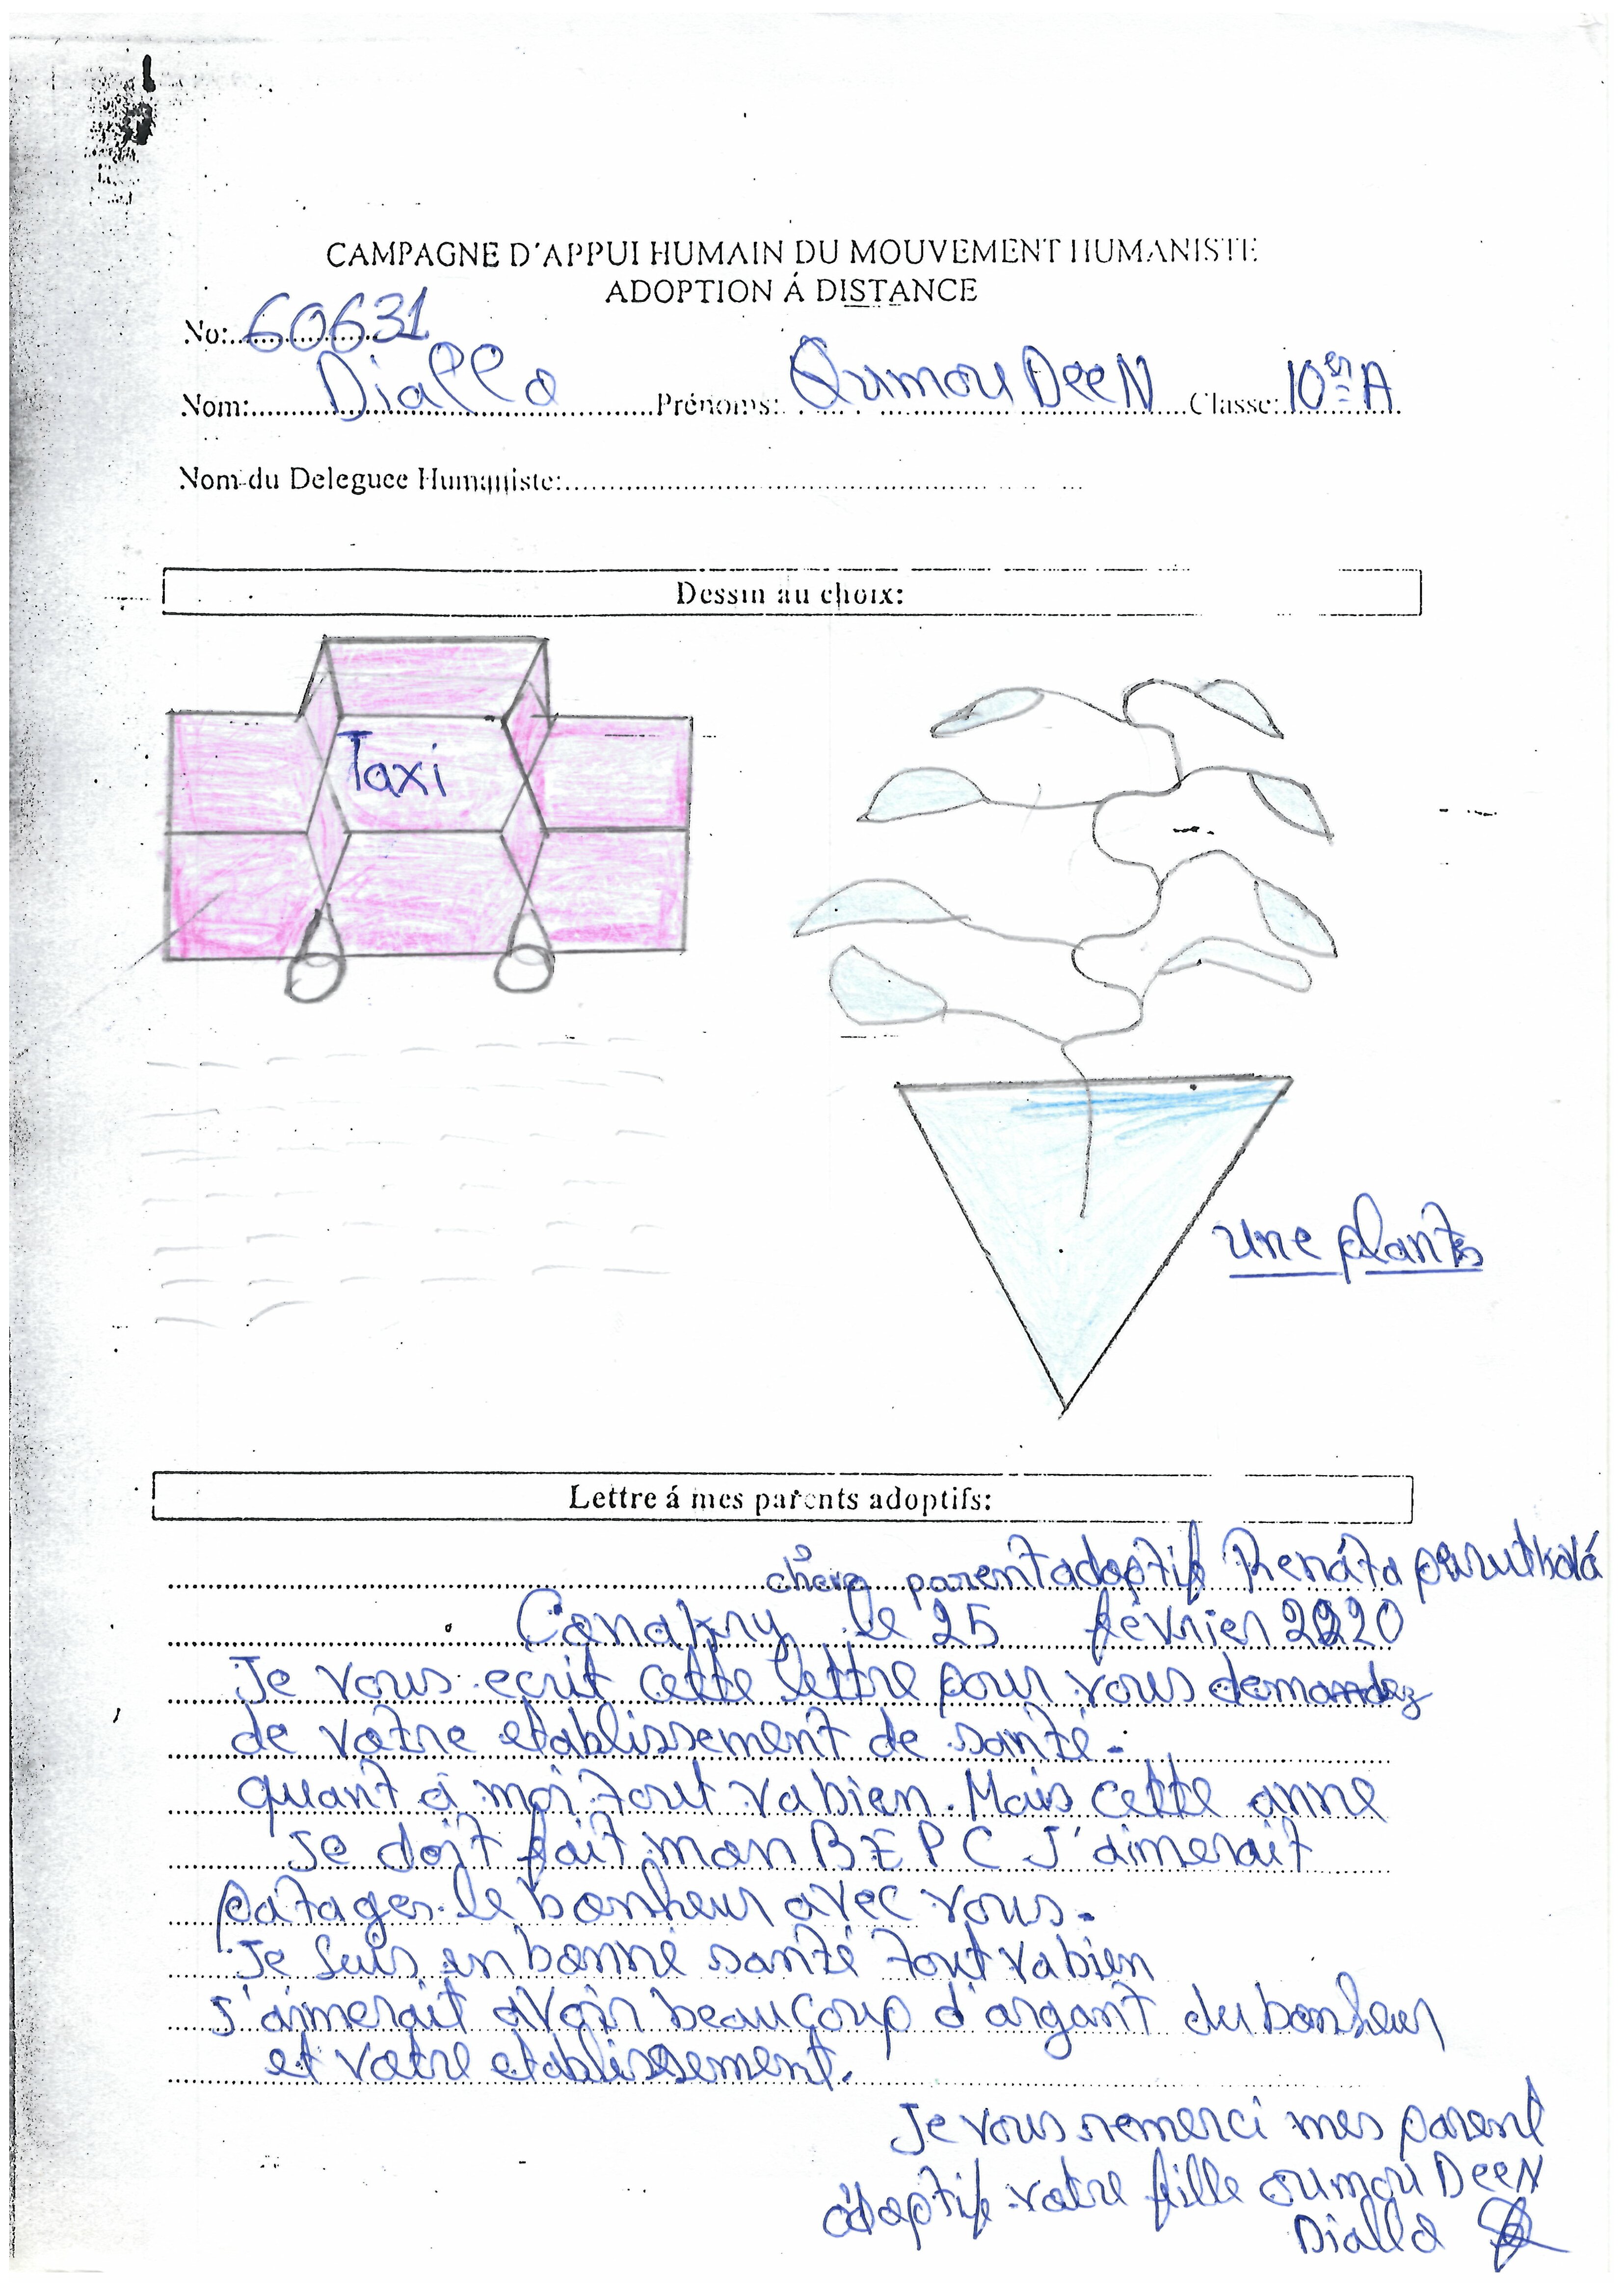 CAMPAGNE D'APPUI HUMAIN DU MOUVEMENT HUMANISTE
ADOPTION Á DISTANCE
No: 60631
Nom: Diallo Prénoms: Oumou DeeN Classe: 10è A
Nom du Deleguee Humaniste:
Dessin au choix:
Taxi
une plants
Lettre á mes parents adoptifs:
chère parent adoptif Renáta
Conakry le 25 février 2020
Je vous ecrit cette lettre pour vous demandez
de votre etablissement de santé.
quant à moi tout va bien. Mais cette anne
Je doit fait mon BEPC J'aimerait
patager le bonheur avec vous.
Je suis en bonne santé tout va bien
J'aimerait avoir beaucoup d'argant du bonheur
et votre etablissement.
Je vous remerci mes parent
adoptif votre fille oumou DeeN
Diallo